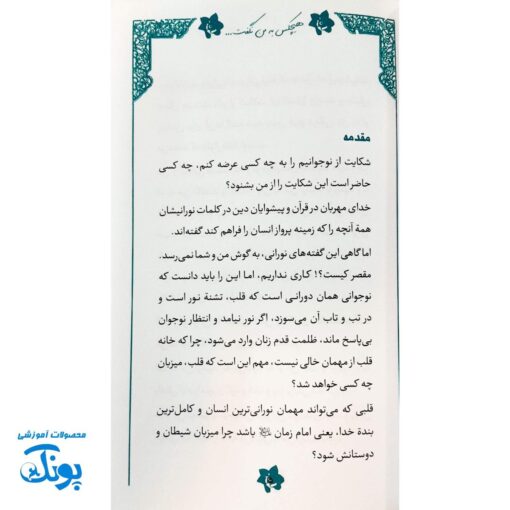 هیچکس به من نگفت...
مقدمه
شکایت از نوجوانیم را به چه کسی عرضه کنم، چه کسی
حاضر است این شکایت را از من بشنود؟
خدای مهربان در قرآن و پیشوایان دین در کلمات نورانیشان
همۀ آنچه را که زمینه پرواز انسان را فراهم کند گفته‌اند.
اما گاهی این گفته‌های نورانی، به گوش من و شما نمی‌رسد.
مقصر کیست؟! کاری نداریم، اما این را باید دانست که
نوجوانی همان دورانی است که قلب، تشنۀ نور است و
در تب و تاب آن می‌سوزد، اگر نور نیامد و انتظار نوجوان
بی‌پاسخ ماند، ظلمت قدم زنان وارد می‌شود، چرا که خانه
قلب از مهمان خالی نیست، مهم این است که قلب، میزبان
چه کسی خواهد شد؟
قلبی که می‌تواند مهمان نورانی‌ترین انسان و کامل‌ترین
بندۀ خدا، یعنی امام زمان باشد چرا میزبان شیطان و
دوستانش شود؟
محصولات آموزشی
پونک